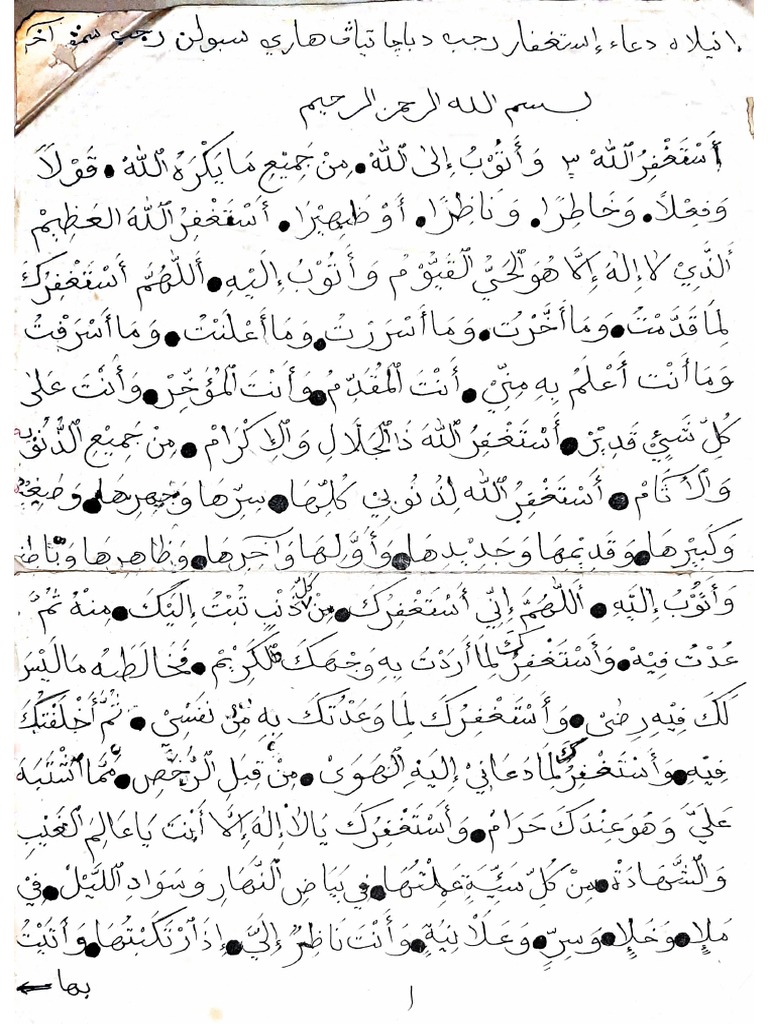 إنيله دعاء إستغفار رجب دباچا تياڤ هاري سبولن رجب سمڤ
بسم الله الرحمن الرحيم
أَسْتَغْفِرُ اللهَ ٣ وَأَتُوْبُ إِلَى اللهِ • مِنْ جَمِيْعِ مَا يَكْرَهُ اللهُ • قَوْلًا
وَفِعْلًا • وَخَاطِرًا • وَنَاظِرًا • أَوْ ظَهِيْرًا • أَسْتَغْفِرُ اللهَ الْعَظِيْمَ
الَّذِيْ لَا إِلٰهَ إِلَّا هُوَ الْحَيُّ الْقَيُّوْمُ وَأَتُوْبُ إِلَيْهِ • اَللّٰهُمَّ أَسْتَغْفِرُكَ
لِمَا قَدَّمْتُ • وَمَا أَخَّرْتُ • وَمَا أَسْرَرْتُ • وَمَا أَعْلَنْتُ • وَمَا أَسْرَفْتُ
وَمَا أَنْتَ أَعْلَمُ بِهِ مِنِّيْ • أَنْتَ الْمُقَدِّمُ • وَأَنْتَ الْمُؤَخِّرُ • وَأَنْتَ عَلَى
كُلِّ شَيْئٍ قَدِيْرٌ • أَسْتَغْفِرُ اللهَ ذَالْجَلَالِ وَالْإِكْرَامْ • مِنْ جَمِيْعِ الذُّنُوْبِ
وَالْأَثَامْ • أَسْتَغْفِرُ اللهَ لِذُنُوْبِيْ كُلِّهَا • سِرِّهَا وَجَهْرِهَا • وَصَغِيْرِهَا
وَكَبِيْرِهَا • وَقَدِيْمِهَا وَجَدِيْدِهَا • وَأَوَّلِهَا وَآخِرِهَا • وَظَاهِرِهَا وَبَاطِنِهَا
وَأَتُوْبُ إِلَيْهِ • اَللّٰهُمَّ إِنِّيْ أَسْتَغْفِرُكَ • مِنْ كُلِّ ذَنْبٍ تُبْتُ إِلَيْكَ • مِنْهُ ثُمَّ
عُدْتُ فِيْهِ • وَأَسْتَغْفِرُكَ لِمَا أَرَدْتُ بِهِ وَجْهَكَ الْكَرِيْمَ • فَخَالَطَهُ مَا لَيْسَ
لَكَ فِيْهِ رِضًى • وَأَسْتَغْفِرُكَ لِمَا وَعَدْتُكَ بِهِ مِنْ نَفْسِيْ • ثُمَّ أَخْلَفْتُكَ
فِيْهِ • وَأَسْتَغْفِرُكَ لِمَا دَعَانِيْ إِلَيْهِ الْهَوَى • مِنْ قِبَلِ الرُّخَصِ • مِمَّا اشْتَبَهَ
عَلَيَّ وَهُوَ عِنْدَكَ حَرَامٌ • وَأَسْتَغْفِرُكَ يَا لَا إِلٰهَ إِلَّا أَنْتَ يَا عَالِمَ الْغَيْبِ
وَالشَّهَادَةْ • مِنْ كُلِّ سَيِّئَةٍ عَمِلْتُهَا • فِيْ بَيَاضِ النَّهَارِ وَسَوَادِ اللَّيْلْ • فِيْ
مَلَإٍ • وَخَلَإٍ • وَسِرٍّ • وَعَلَانِيَةٍ • وَأَنْتَ نَاظِرٌ إِلَيَّ • إِذَا ارْتَكَبْتُهَا • وَأَتَيْتُ
بها ←
١